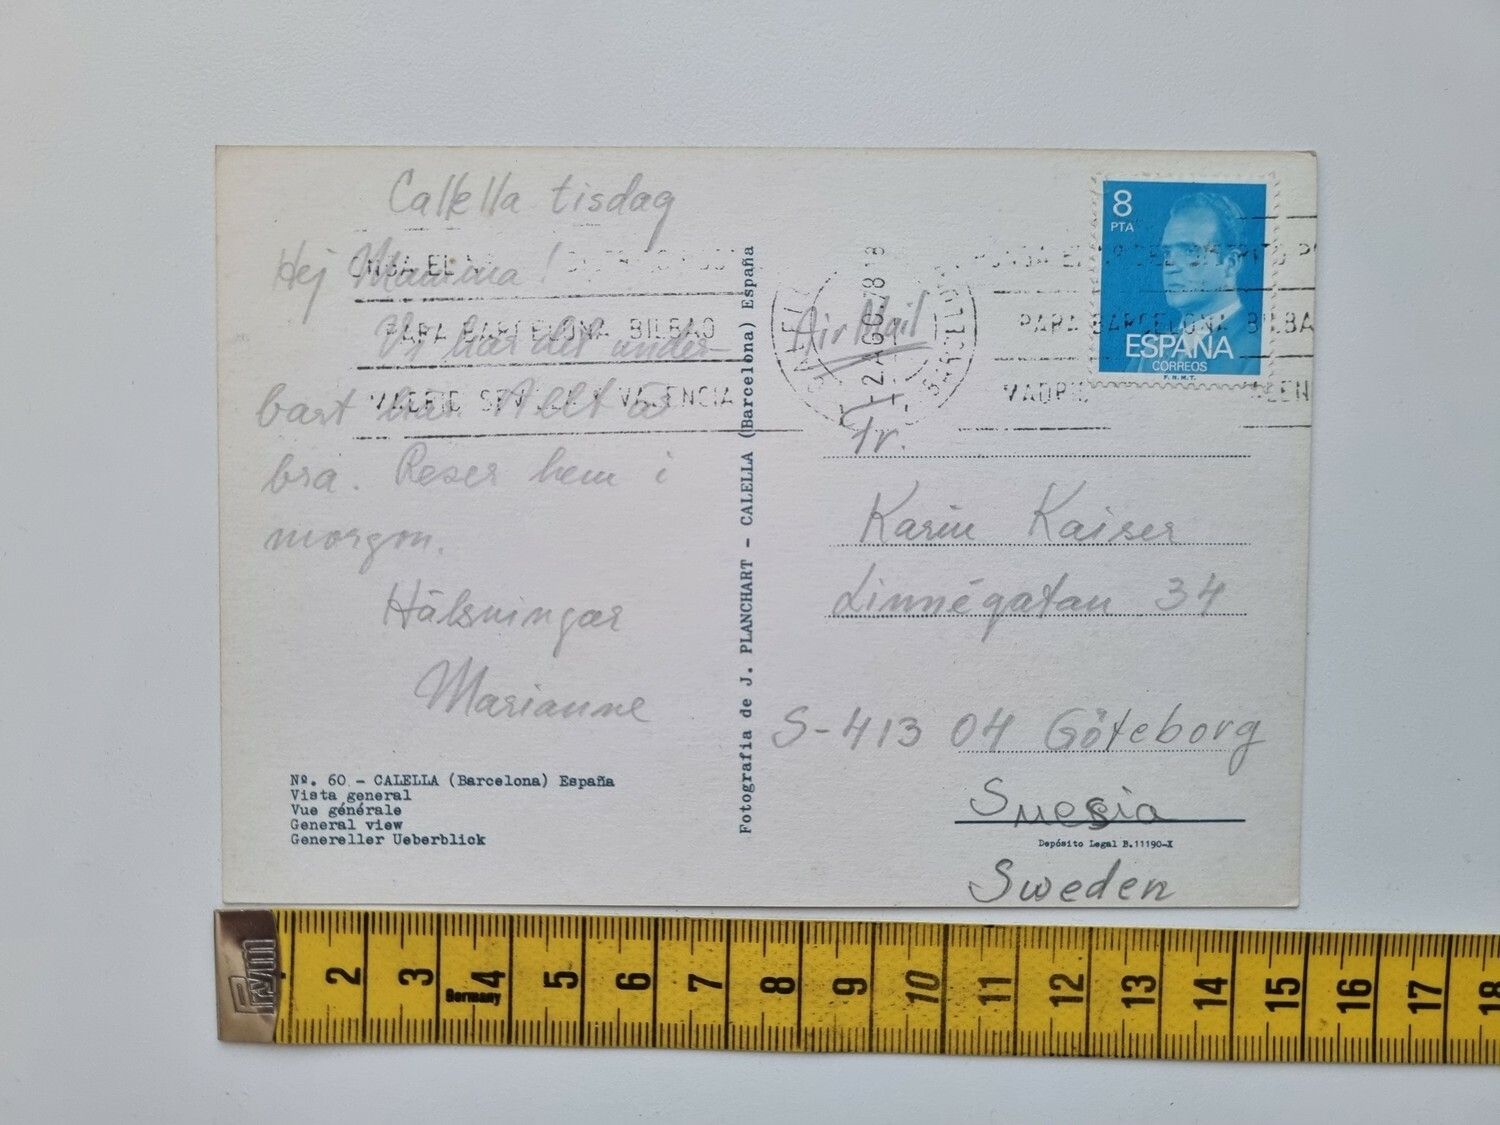 Calella tisdag
Hej Mamma!
Vi har det under-
bart här. Allt är
bra. Reser hem i
morgon.
Hälsningar
Marianne
Nº. 60 - CALELLA (Barcelona) España
Vista general
Vue générale
General view
Genereller Ueberblick
Fotografia de J. PLANCHART - CALELLA (Barcelona) España
PARA BARCELONA BILBAO
MADRID SEVILLA Y VALENCIA
2 AGO. 78
Air Mail
8
PTA
ESPAÑA
CORREOS
F.N.M.T.
PARA BARCELONA BILBA
MADRID
Fr.
Karin Kaiser
Linnégatan 34
S-413 04 Göteborg
Suesia
Depósito Legal B.11190-X
Sweden
Prym
Germany
2 3 4 5 6 7 8 9 10 11 12 13 14 15 16 17 18